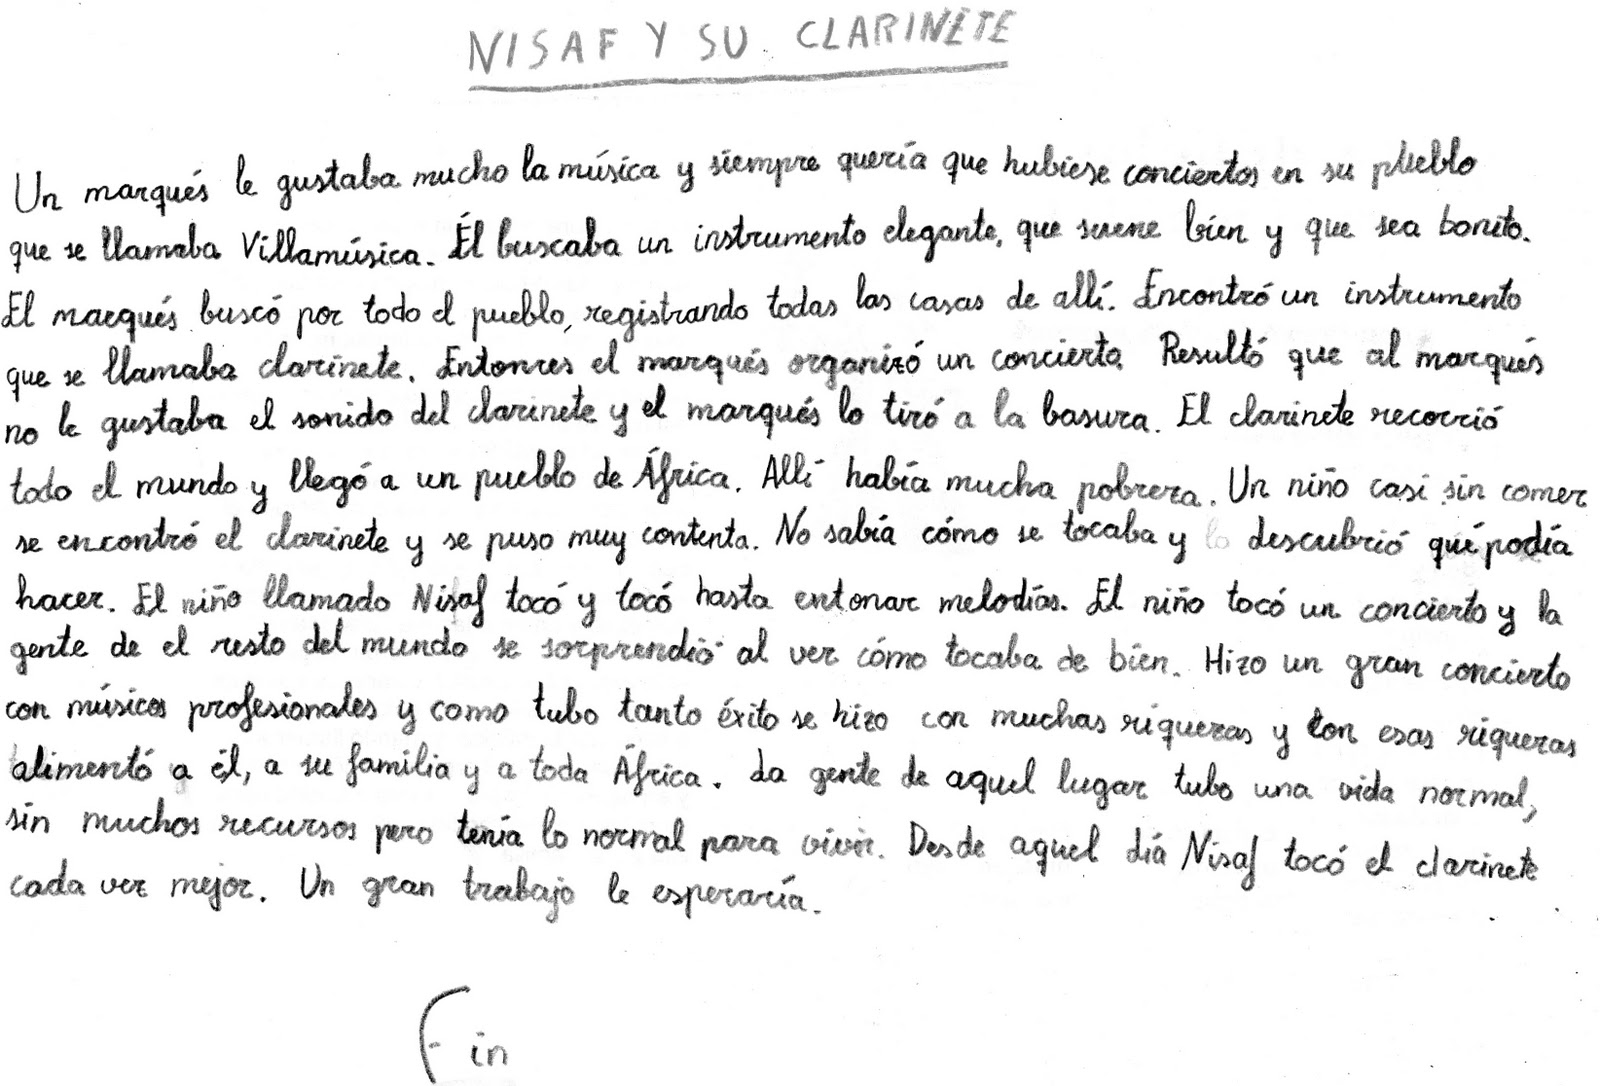 NISAF Y SU CLARINETE
Un marqués le gustaba mucho la música y siempre quería que hubiese conciertos en su pueblo
que se llamaba Villamúsica. Él buscaba un instrumento elegante, que suene bien y que sea bonito.
El marqués buscó por todo el pueblo, registrando todas las casas de allí. Encontró un instrumento
que se llamaba clarinete. Entonces el marqués organizó un concierto. Resultó que al marqués
no le gustaba el sonido del clarinete y el marqués lo tiró a la basura. El clarinete recorrió
todo el mundo y llegó a un pueblo de África. Allí había mucha pobreza. Un niño casi sin comer
se encontró el clarinete y se puso muy contenta. No sabía cómo se tocaba y lo descubrió qué podía
hacer. El niño llamado Nisaf tocó y tocó hasta entonar melodías. El niño tocó un concierto y la
gente de el resto del mundo se sorprendió al ver cómo tocaba de bien. Hizo un gran concierto
con músicos profesionales y como tubo tanto éxito se hizo con muchas riquezas y con esas riquezas
alimentó a él, a su familia y a toda África. La gente de aquel lugar tubo una vida normal,
sin muchos recursos pero tenía lo normal para vivir. Desde aquel día Nisaf tocó el clarinete
cada vez mejor. Un gran trabajo le esperaría.
Fin